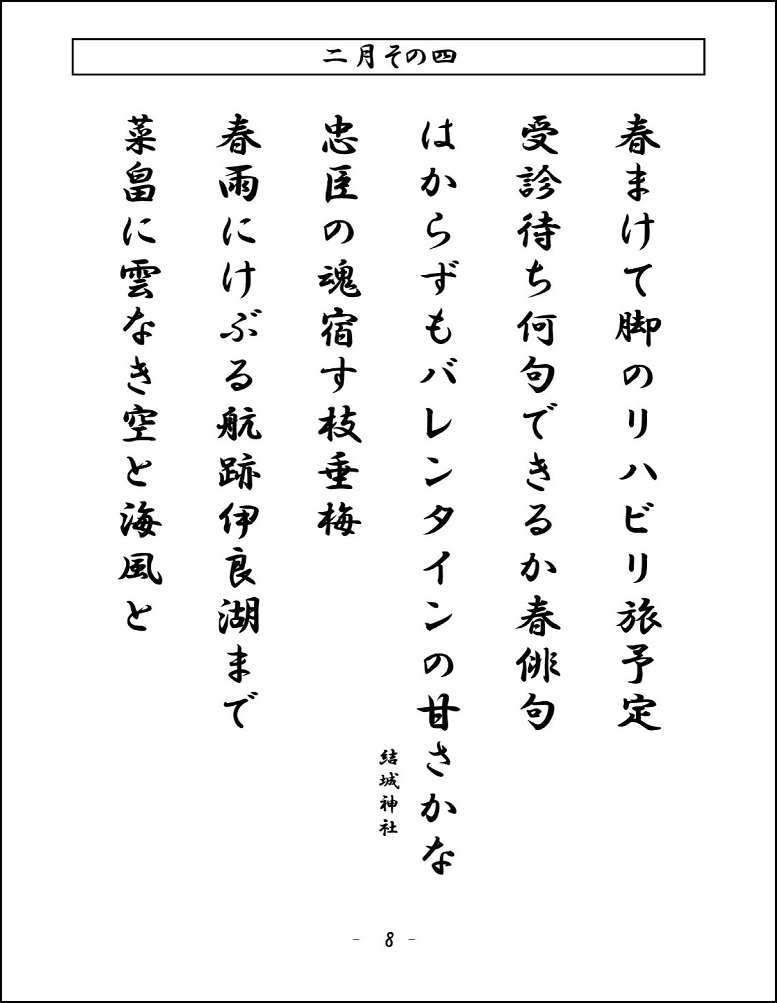 二月その四
春まけて脚のリハビリ旅予定
受診待ち何句できるか春俳句
はからずもバレンタインの甘さかな
結城神社
忠臣の魂宿す枝垂梅
春雨にけぶる航跡伊良湖まで
菜畠に雲なき空と海風と
- 8 -